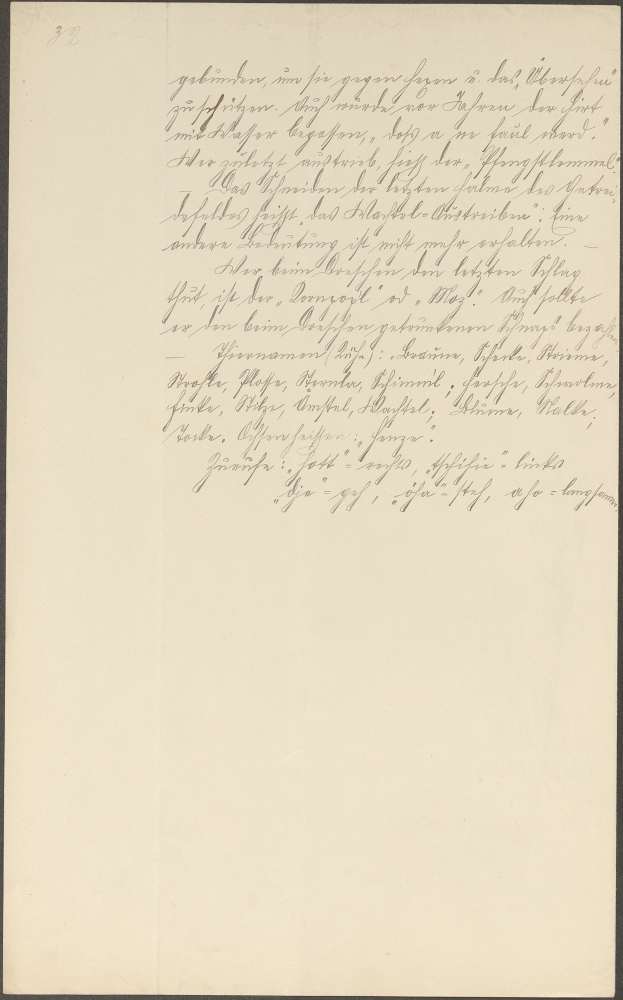 32
gebunden, um sie gegen Hexen u. das „Übersehen"
zu schützen. Auch wurde vor Jahren der Hirt
mit Wasser begossen, „dass a ne faul werd."
Wer zuletzt austrieb, hieß der „Pfengstlemmel".
— Das Schneiden der letzten Halme des Getrei-
defeldes heißt „das Wachtel-Austreiben". Eine
andere Bedeutung ist nicht mehr erhalten. —
Wer beim Dreschen den letzten Schlag
thut, ist der od „Moz". Auch sollte
er den beim Dreschen getrunkenen Schnaps bezahlen
— Thiernamen (Kühe): Braune, Schecke, Strieme,
Strohle, Plosse, Sternla, Schimmil; Hersche, Schwolme,
Finke, Stilze, Amstel, Wachtel; Blume, Nalke,
Tocke. Ochsen heißen: „Henze".
Zurufe: „hott" = rechts, „tschihie" = links
„djo" = geh, „öha" = steh, aho = langsamer